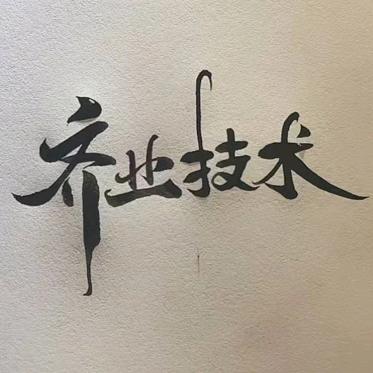 齐业技术